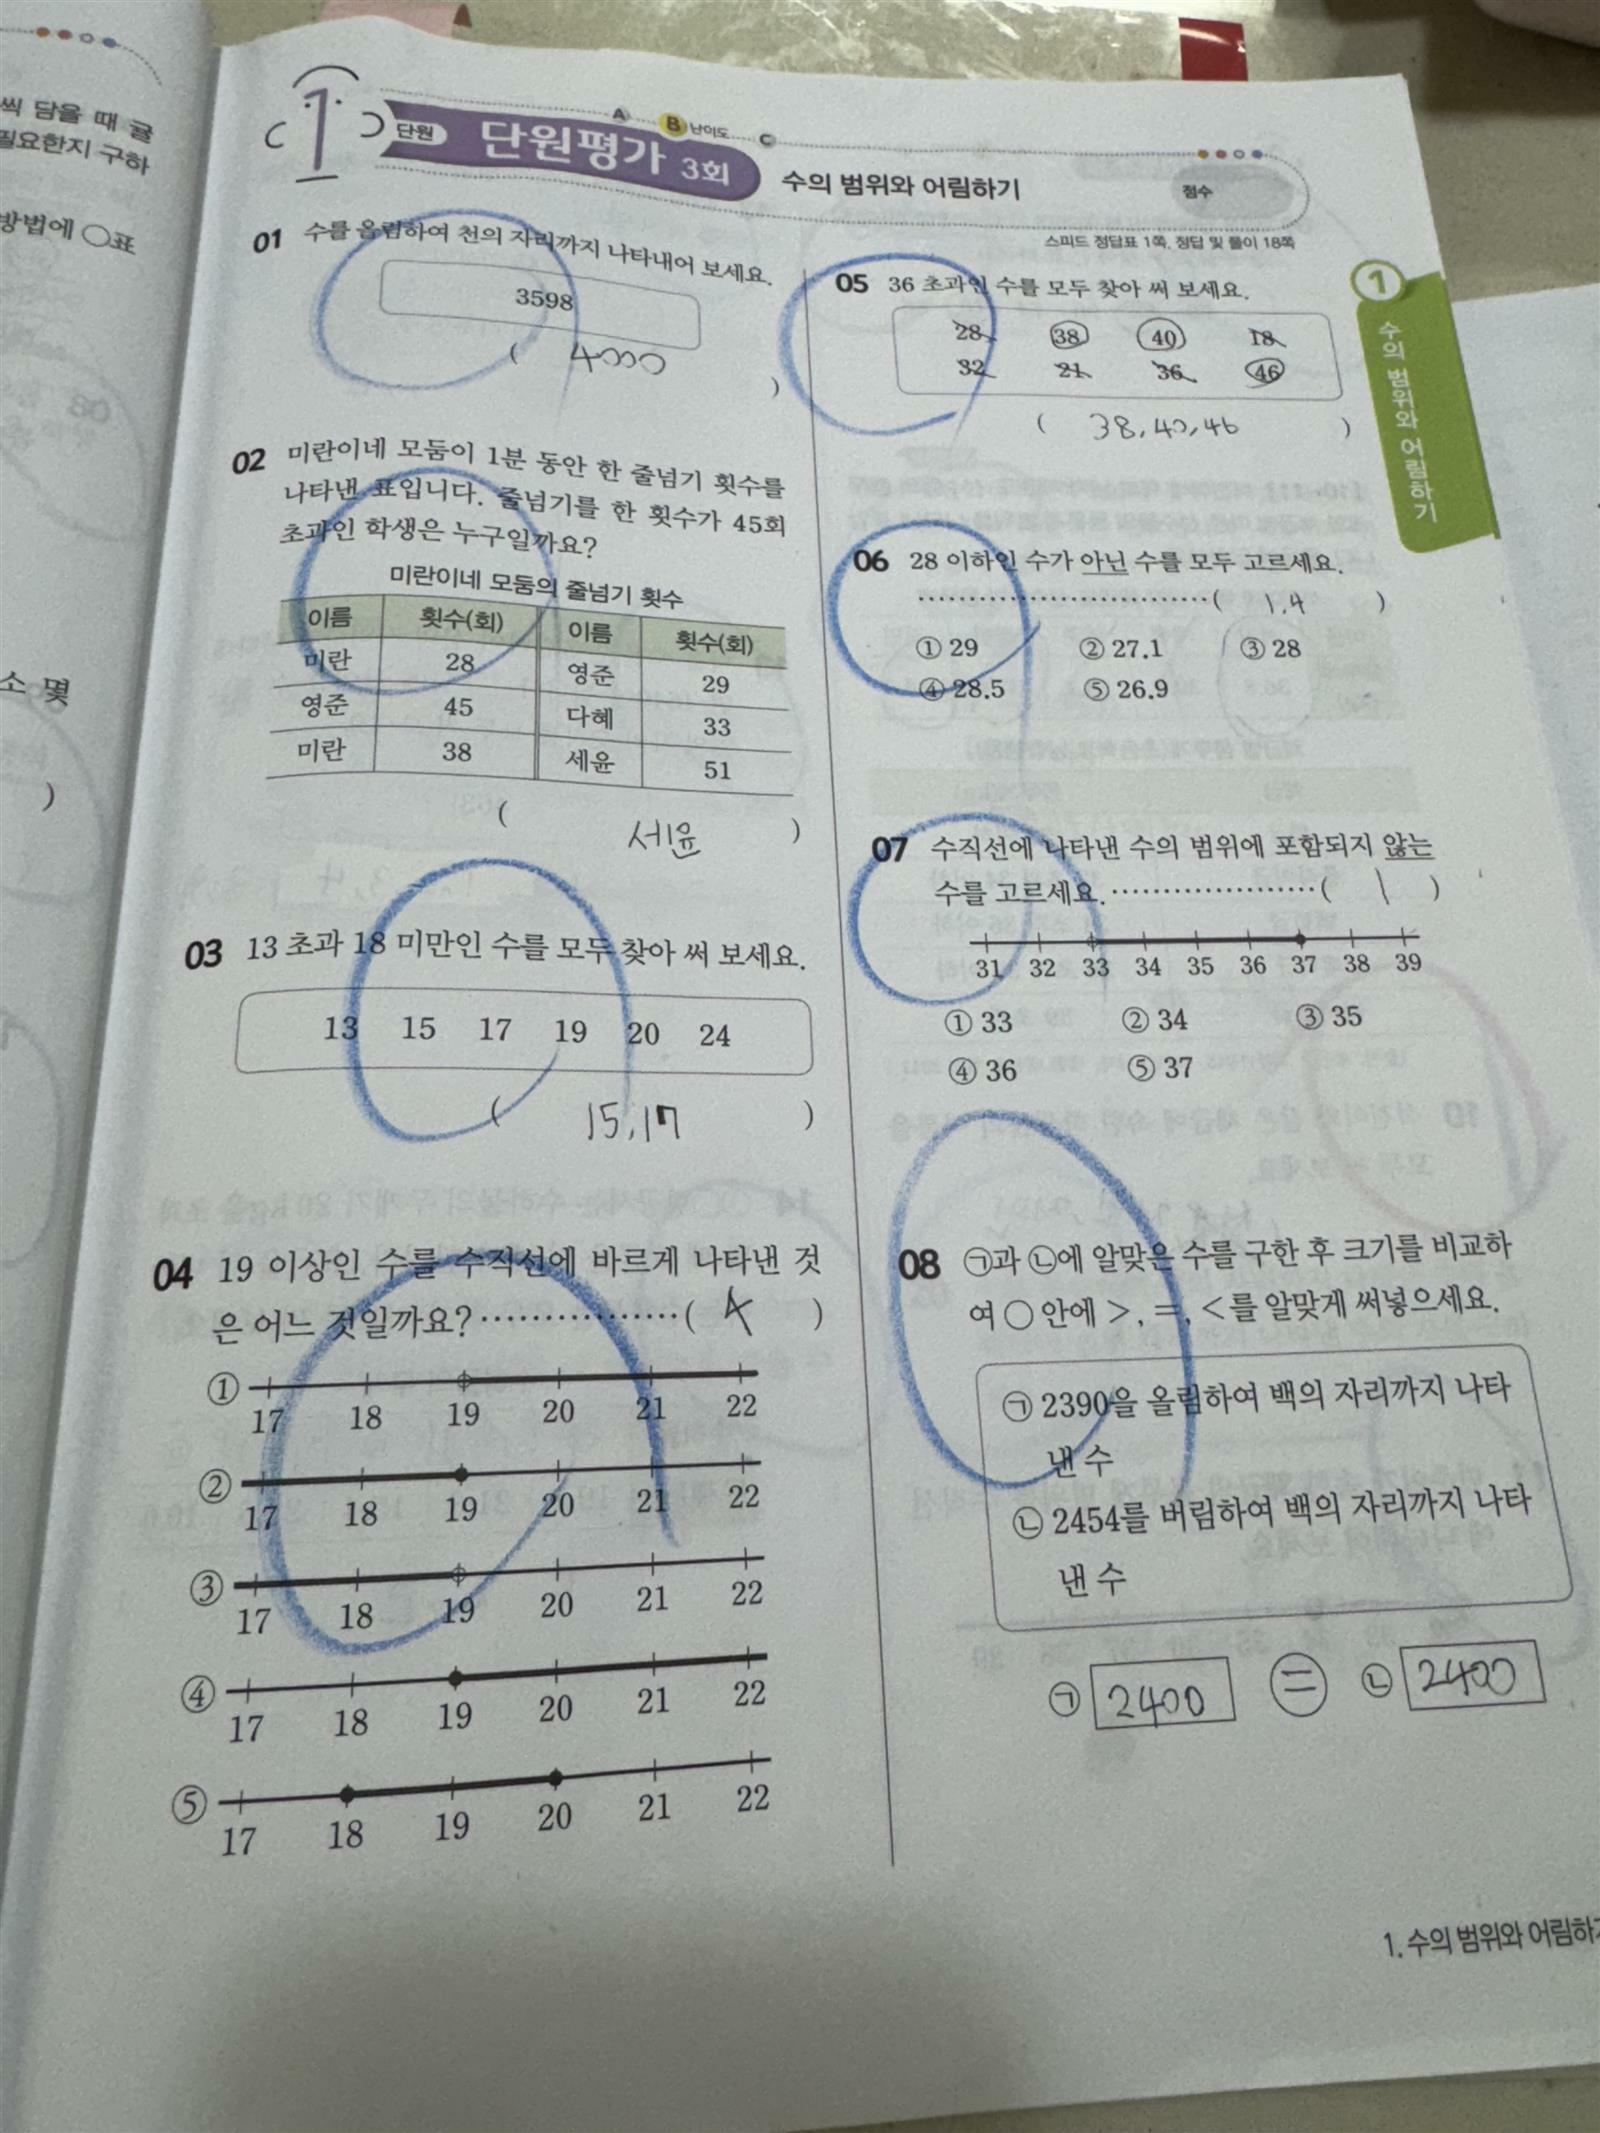 씩 담을 때 귤
필요한지 구하
방법에 ○표
소 몇
)
1 단원 단원평가 3회
A B 난이도 C
수의 범위와 어림하기
점수
스피드 정답표 1쪽, 정답 및 풀이 18쪽
01 수를 올림하여 천의 자리까지 나타내어 보세요.
3598
( 4000 )
02 미란이네 모둠이 1분 동안 한 줄넘기 횟수를
나타낸 표입니다. 줄넘기를 한 횟수가 45회
초과인 학생은 누구일까요?
미란이네 모둠의 줄넘기 횟수
이름 횟수(회) 이름 횟수(회)
미란 28 영준 29
영준 45 다혜 33
미란 38 세윤 51
( 세윤 )
03 13 초과 18 미만인 수를 모두 찾아 써 보세요.
13 15 17 19 20 24
( 15, 17 )
04 19 이상인 수를 수직선에 바르게 나타낸 것
은 어느 것일까요? ················( 4 )
①
17 18 19 20 21 22
②
17 18 19 20 21 22
③
17 18 19 20 21 22
④
17 18 19 20 21 22
⑤
17 18 19 20 21 22
05 36 초과인 수를 모두 찾아 써 보세요.
28 38 40 18
32 21 36 46
( 38, 40, 46 )
06 28 이하인 수가 아닌 수를 모두 고르세요.
·····························( 1, 4 )
① 29 ② 27.1 ③ 28
④ 28.5 ⑤ 26.9
07 수직선에 나타낸 수의 범위에 포함되지 않는
수를 고르세요. ····················( 1 )
31 32 33 34 35 36 37 38 39
① 33 ② 34 ③ 35
④ 36 ⑤ 37
08 ㉠과 ㉡에 알맞은 수를 구한 후 크기를 비교하
여 ○ 안에 >, =, <를 알맞게 써넣으세요.
㉠ 2390을 올림하여 백의 자리까지 나타
낸 수
㉡ 2454를 버림하여 백의 자리까지 나타
낸 수
㉠ 2400 = ㉡ 2400
1
수의 범위와 어림하기
1. 수의 범위와 어림하기